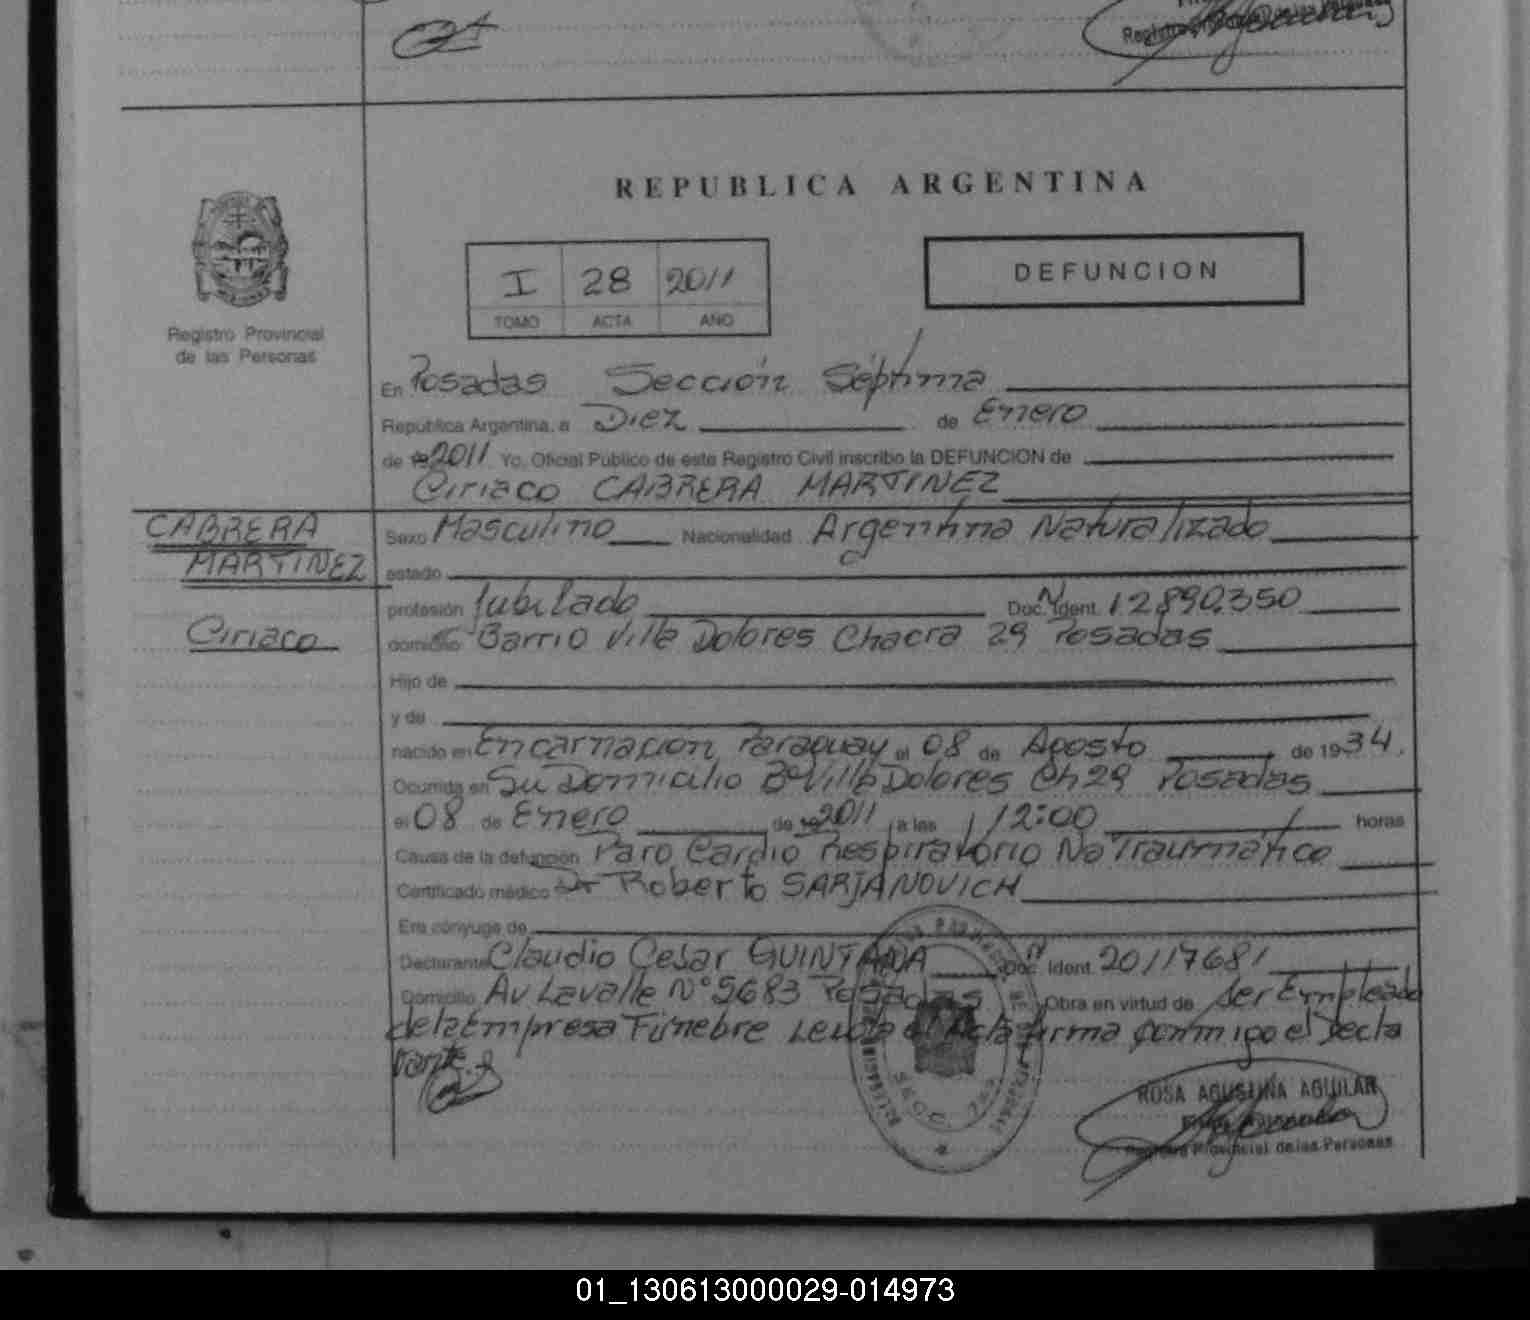 Registro Provincial de las Personas
REPUBLICA ARGENTINA
I 28 2011
TOMO ACTA AÑO
DEFUNCION
Registro Provincial
de las Personas
En Posadas Sección Séptima
República Argentina, a Diez de Enero
de 2011 Yo, Oficial Público de este Registro Civil inscribo la DEFUNCION de
Ciriaco CABRERA MARTINEZ
CABRERA
MARTINEZ
Ciriaco
Sexo Masculino Nacionalidad Argentina Naturalizado
estado
profesión Jubilado Doc. Ident. N 12.890.350
domicilio Barrio Villa Dolores Chacra 29 Posadas
Hijo de
y de
nacido en Encarnación Paraguay el 08 de Agosto de 1934.
Ocurrida en Su Domicilio Bº Villa Dolores Ch 29 Posadas
el 08 de Enero de 2011 a las 12:00 horas
Causa de la defunción Paro Cardio Respiratorio No Traumático
Certificado médico Dr Roberto SARJANOVICH
Era cónyuge de
Declarante Claudio Cesar QUINTANA Doc. Ident. N 20117681
Domicilio Av Lavalle Nº 5683 Posadas Obra en virtud de ser Empleado
de la Empresa Fúnebre Leida el Acta firma conmigo el Decla
rante.
ROSA AGUSTINA AGUILAR
Registro Provincial de las Personas
01_130613000029-014973